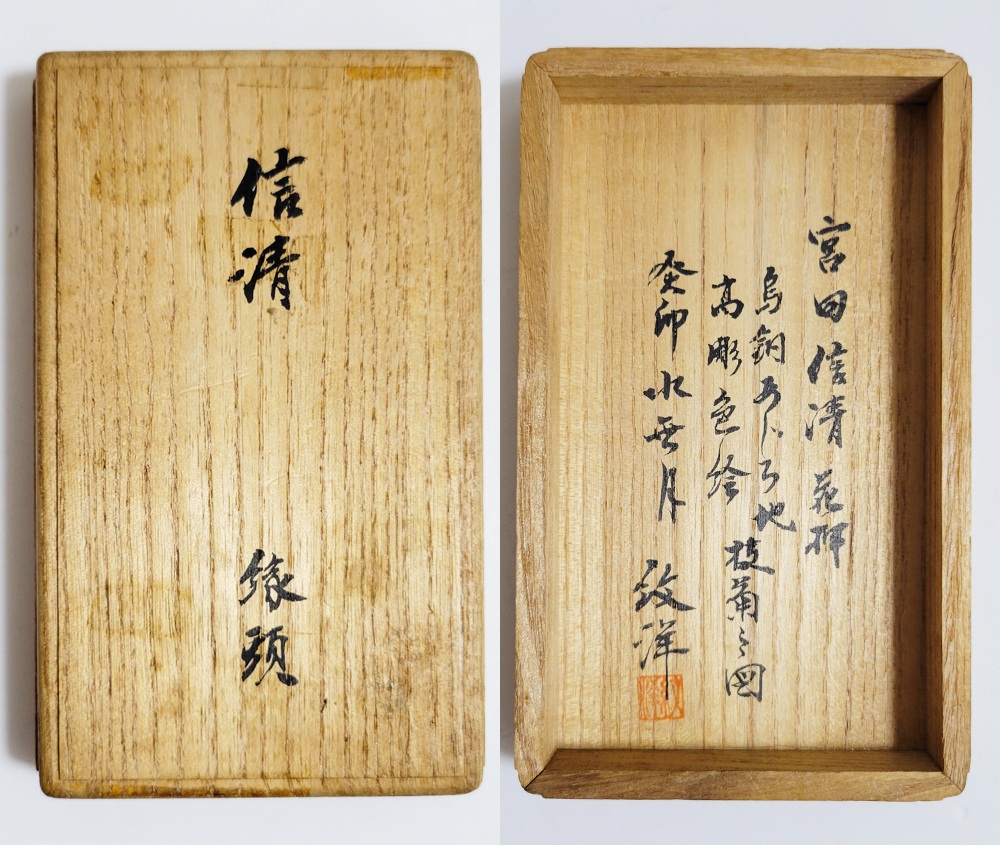 信清
縁頭
宮田信清 花押
烏銅あじろ地
高彫色絵
枝菊之図
癸卯水無月
洋